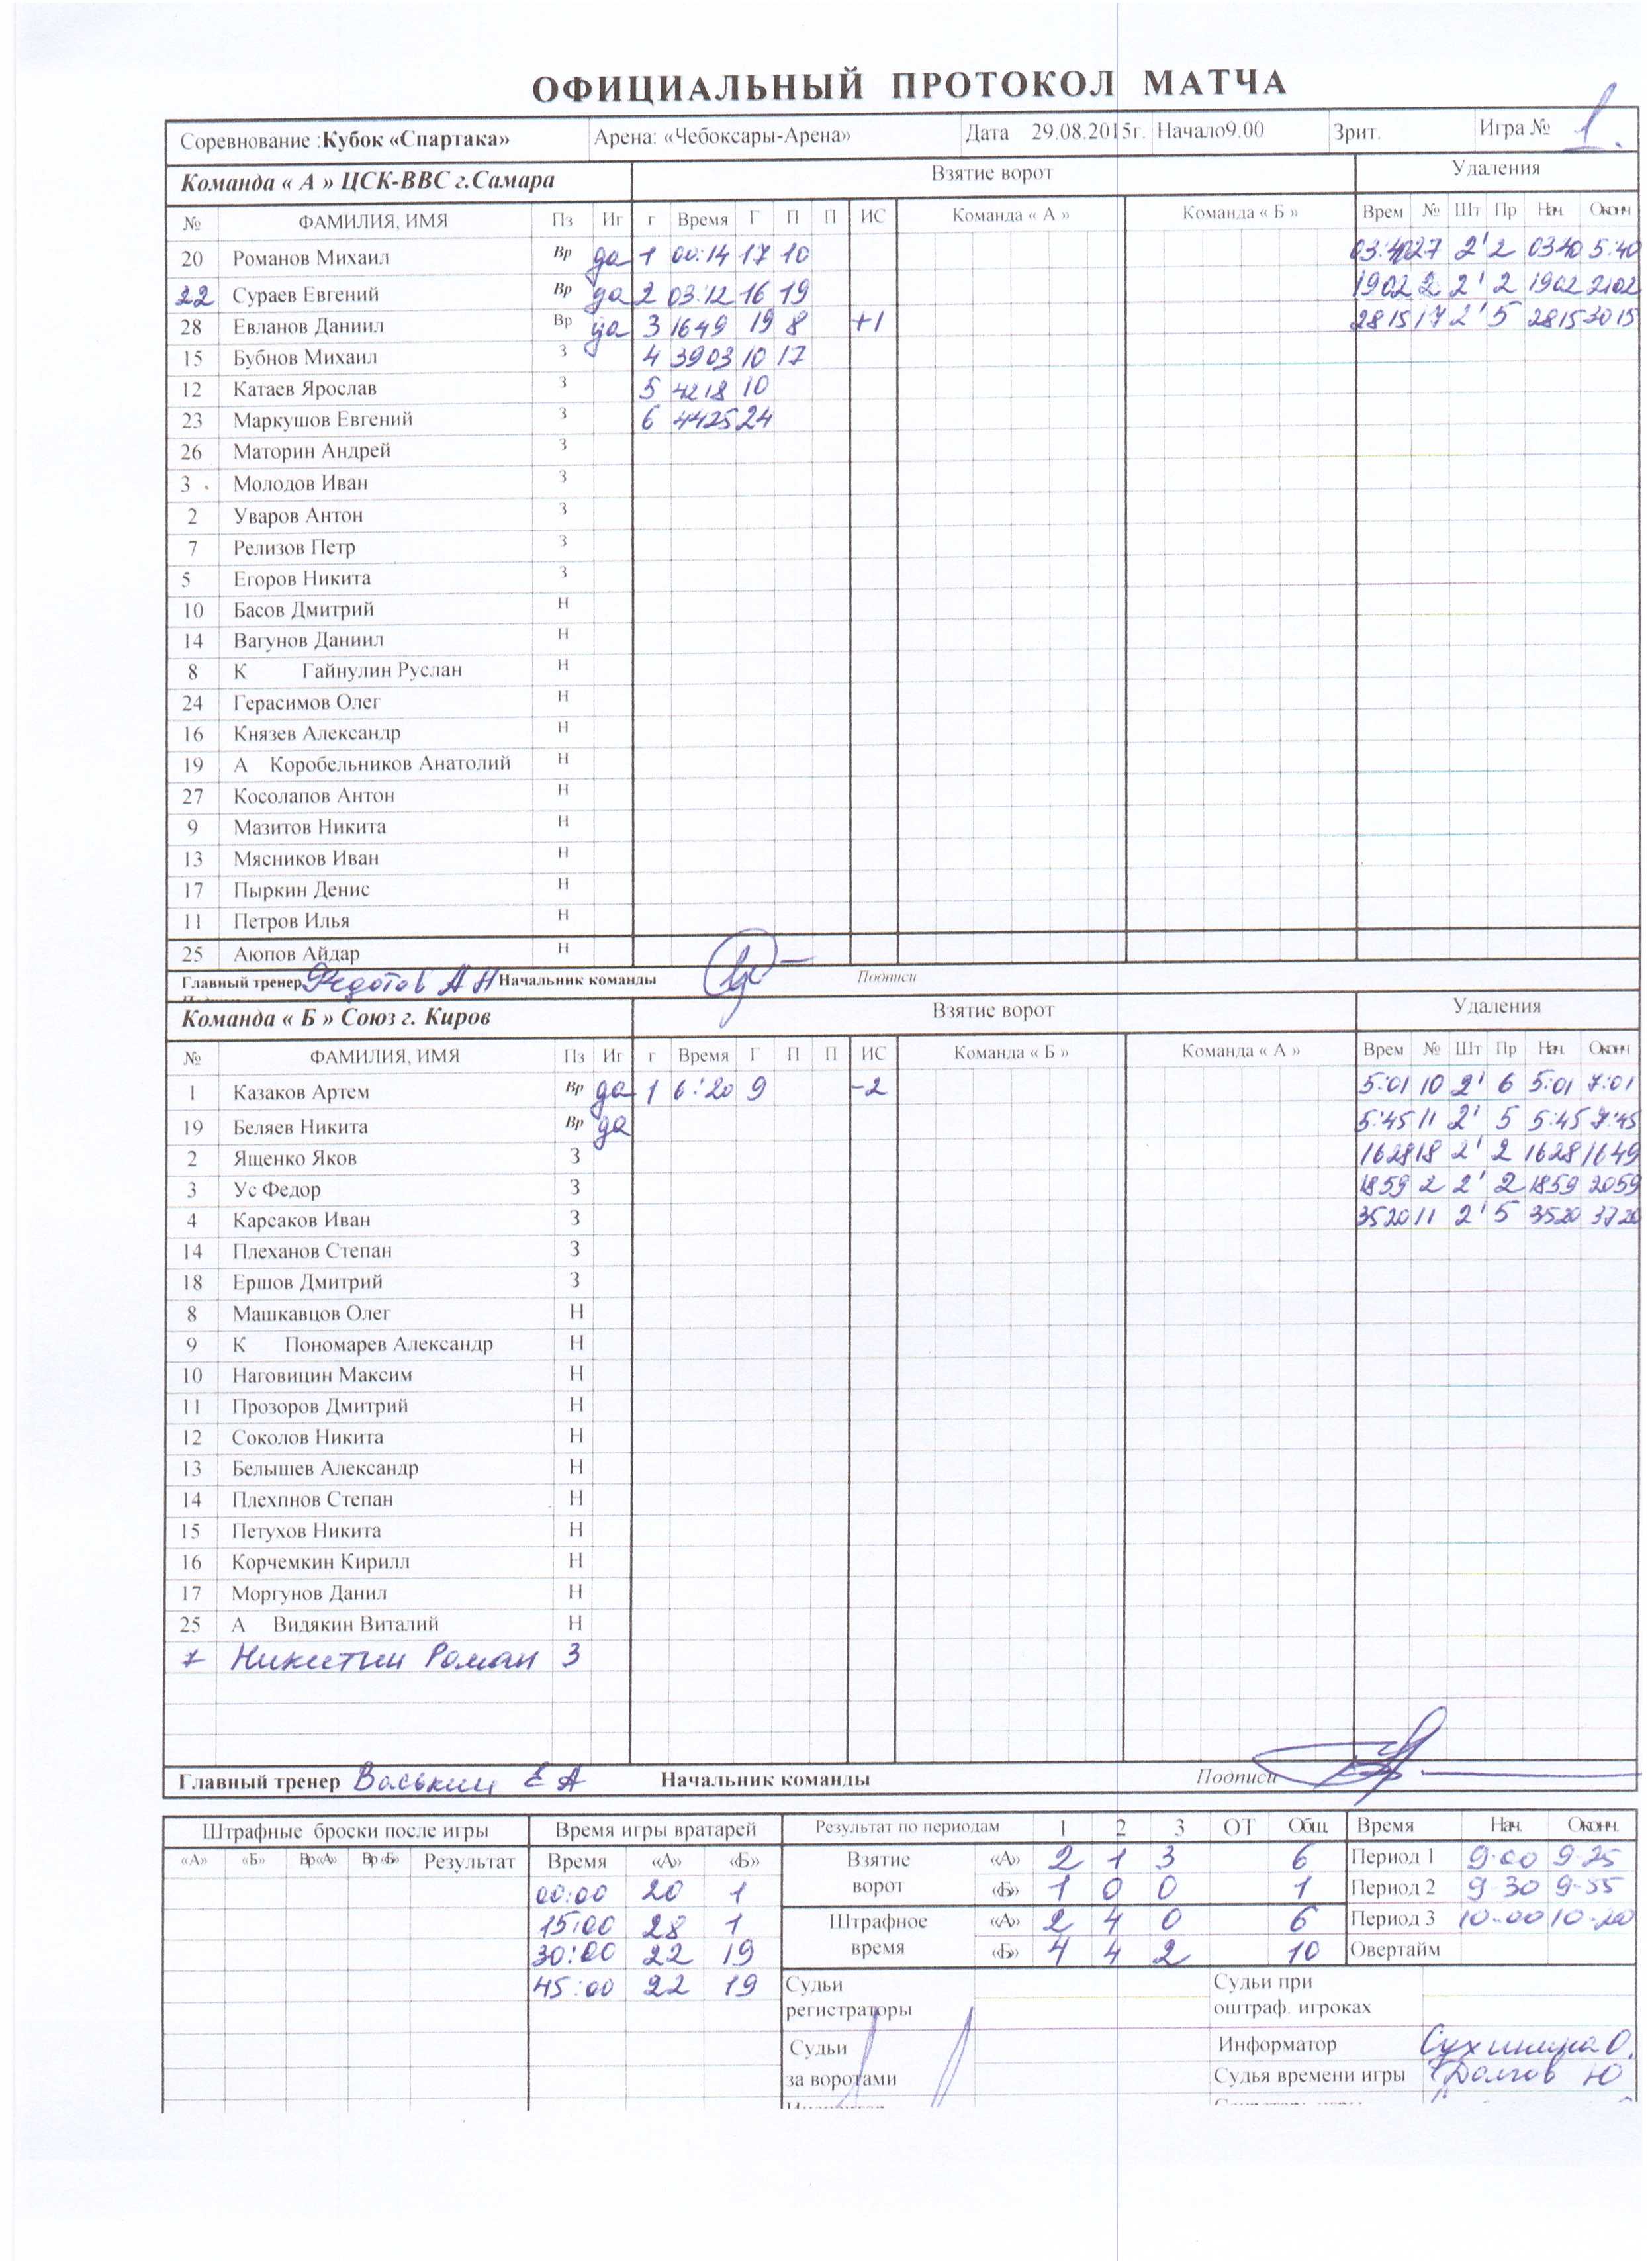 ОФИЦИАЛЬНЫЙ ПРОТОКОЛ МАТЧА
Соревнование :Кубок «Спартака» Арена: «Чебоксары-Арена» Дата 29.08.2015г. Начало9.00 Зрит. Игра № 1.
Команда « А » ЦСК-ВВС г.Самара Взятие ворот Удаления
№ ФАМИЛИЯ, ИМЯ Пз Иг г Время Г П П ИС Команда « А » Команда « Б » Врем № Шт Пр Нач. Оконч
20 Романов Михаил Вр да 1 00:14 17 10 03:40 27 2' 2 0340 5:40
22 Сураев Евгений Вр да 2 03:12 16 19 1902 2 2' 2 1902 2102
28 Евланов Даниил Вр да 3 1649 19 8 +1 2815 17 2' 5 2815 3015
15 Бубнов Михаил З 4 3903 10 17
12 Катаев Ярослав З 5 4218 10
23 Маркушов Евгений З 6 4425 24
26 Маторин Андрей З
3 Молодов Иван З
2 Уваров Антон З
7 Релизов Петр З
5 Егоров Никита З
10 Басов Дмитрий Н
14 Вагунов Даниил Н
8 К Гайнулин Руслан Н
24 Герасимов Олег Н
16 Князев Александр Н
19 А Коробельников Анатолий Н
27 Косолапов Антон Н
9 Мазитов Никита Н
13 Мясников Иван Н
17 Пыркин Денис Н
11 Петров Илья Н
25 Аюпов Айдар Н
Главный тренер Федотов А Н Начальник команды Подписи
Команда « Б » Союз г. Киров Взятие ворот Удаления
№ ФАМИЛИЯ, ИМЯ Пз Иг г Время Г П П ИС Команда « Б » Команда « А » Врем № Шт Пр Нач. Оконч
1 Казаков Артем Вр да 1 6:20 9 -2 5:01 10 2' 6 5:01 7:01
19 Беляев Никита Вр да 5:45 11 2' 5 5:45 7:45
2 Ященко Яков З 1628 18 2' 2 1628 1649
3 Ус Федор З 1859 2 2' 2 1859 2059
4 Карсаков Иван З 3520 11 2' 5 3520 3720
14 Плеханов Степан З
18 Ершов Дмитрий З
8 Машкавцов Олег Н
9 К Пономарев Александр Н
10 Наговицин Максим Н
11 Прозоров Дмитрий Н
12 Соколов Никита Н
13 Белышев Александр Н
14 Плехпнов Степан Н
15 Петухов Никита Н
16 Корчемкин Кирилл Н
17 Моргунов Данил Н
25 А Видякин Виталий Н
7 Никитин Роман З
Главный тренер Васькин Е А Начальник команды Подписи
Штрафные броски после игры Время игры вратарей Результат по периодам 1 2 3 ОТ Общ. Время Нач. Оконч.
«А» «Б» Вр«А» Вр«Б» Результат Время «А» «Б» Взятие ворот «А» 2 1 3 6 Период 1 9-00 9-25
00:00 20 1 «Б» 1 0 0 1 Период 2 9-30 9-55
15:00 28 1 Штрафное время «А» 2 4 0 6 Период 3 10-00 10-20
30:00 22 19 «Б» 4 4 2 10 Овертайм
45:00 22 19 Судьи регистраторы Судьи при оштраф. игроках
Судьи за воротами Информатор
Судья времени игры Долгов Ю